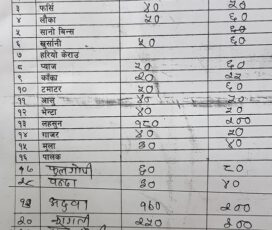 ३ फर्सि ४० ५०
४ लौका ५० ६०
५ सानो बिन्स ६०
६ खुर्सानी ५० ६०
७ हरियो केराउ
८ प्याज ५० ६०
९ काँक्रा २० २५
१० टमाटर ५० ६०
११ आलु ४० ५०
१२ भेन्टा ४० ५०
१३ लहसुन १८० २००
१४ गाजर ४० ५०
१५ मुला ३० ४०
१६ पालक
१७ फूलगोपी ६० ८०
१८ बन्दा ३० ४०
१९ अदुवा १६० २००
२० कागती २५० ३००